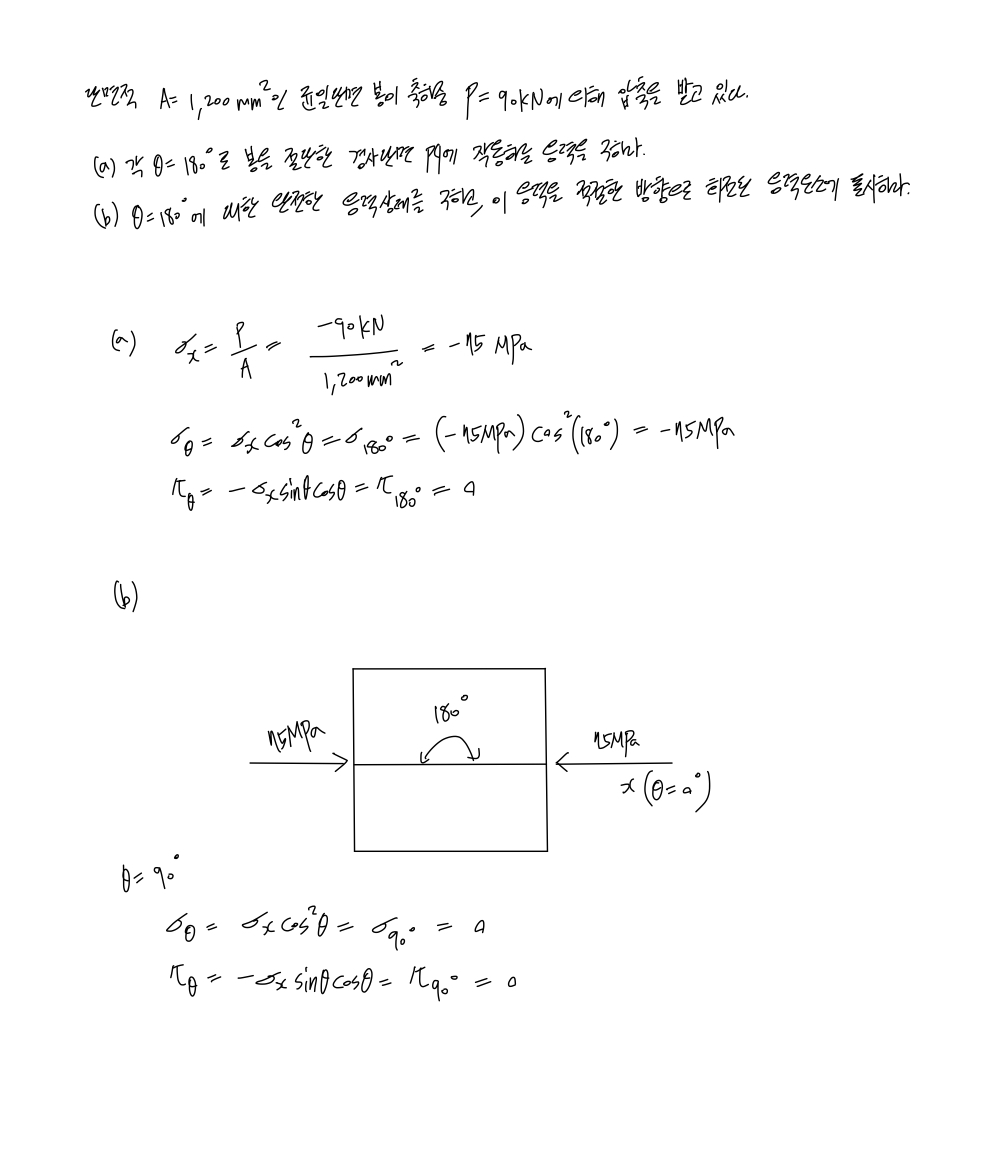 단면적 A= 1,200 mm²인 균일단면 봉이 축하중 P= 90kN에 의해 압축을 받고 있다.
(a) 각 θ= 180°로 봉을 절단한 경사단면 pq에 작용하는 응력을 구하라.
(b) θ=180°에 대한 완전한 응력상태를 구하고, 이 응력을 적절한 방향으로 회전된 응력요소에 표시하라.
(a) σx = P/A = -90kN/1,200mm² = -75 MPa
σθ = σx cos²θ = σ180° = (-75MPa) cos²(180°) = -75MPa
τθ = -σx sinθ cosθ = τ180° = 0
(b)
180°
75MPa
75MPa
x (θ=0°)
θ= 90°
σθ = σx cos²θ = σ90° = 0
τθ = -σx sinθ cosθ = τ90° = 0